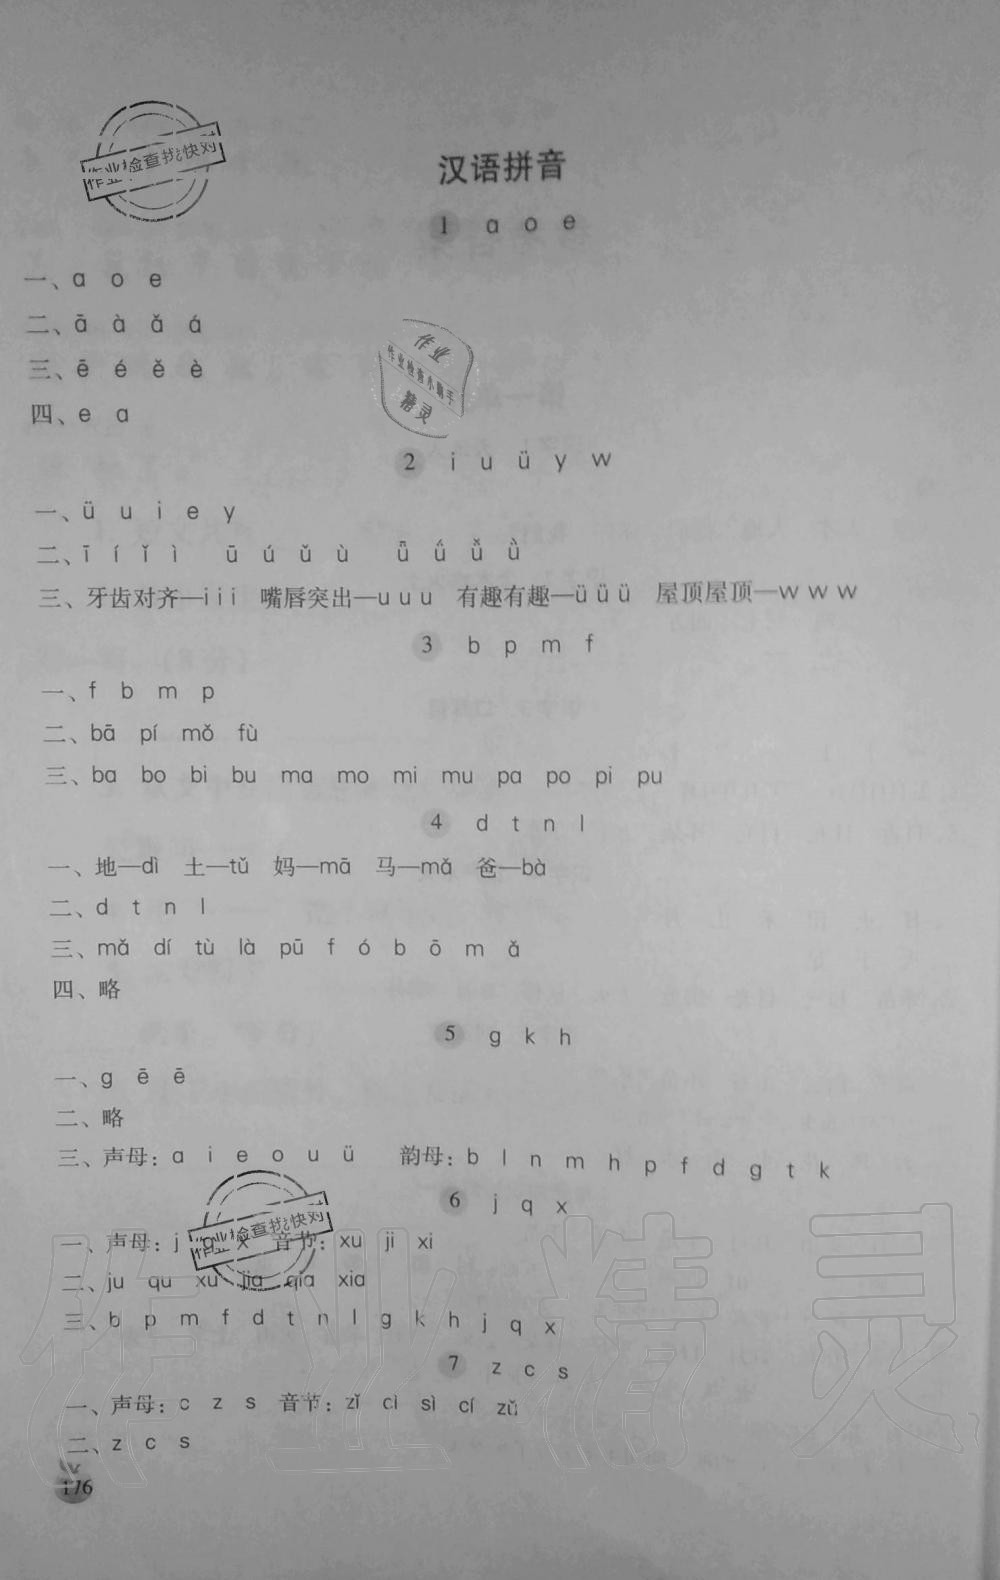 作业检查找快对
汉语拼音
1 a o e
一、a o e
二、ā à ǎ á
三、ē é ě è
作业
作业检查小助手
精灵
四、e a
2 i u ü y w
一、ü u i e y
二、ī í ǐ ì ū ú ǔ ù ǖ ǘ ǚ ǜ
三、牙齿对齐—i i i 嘴唇突出—u u u 有趣有趣—ü ü ü 屋顶屋顶—w w w
3 b p m f
一、f b m p
二、bā pí mǒ fù
三、ba bo bi bu ma mo mi mu pa po pi pu
4 d t n l
一、地—dì 土—tǔ 妈—mā 马—mǎ 爸—bà
二、d t n l
三、mǎ dí tù là pū f ó b ō m ǎ
四、略
5 g k h
一、g ē ē
二、略
三、声母: a i e o u ü 韵母: b l n m h p f d g t k
6 j q x
作业检查找快对
一、声母: j q x 音节: xu ji xi
二、ju qu xu jia qia xia
三、b p m f d t n l g k h j q x
7 z c s
一、声母: c z s 音节: zǐ cì sì cí zǔ
二、z c s
176
作业精灵